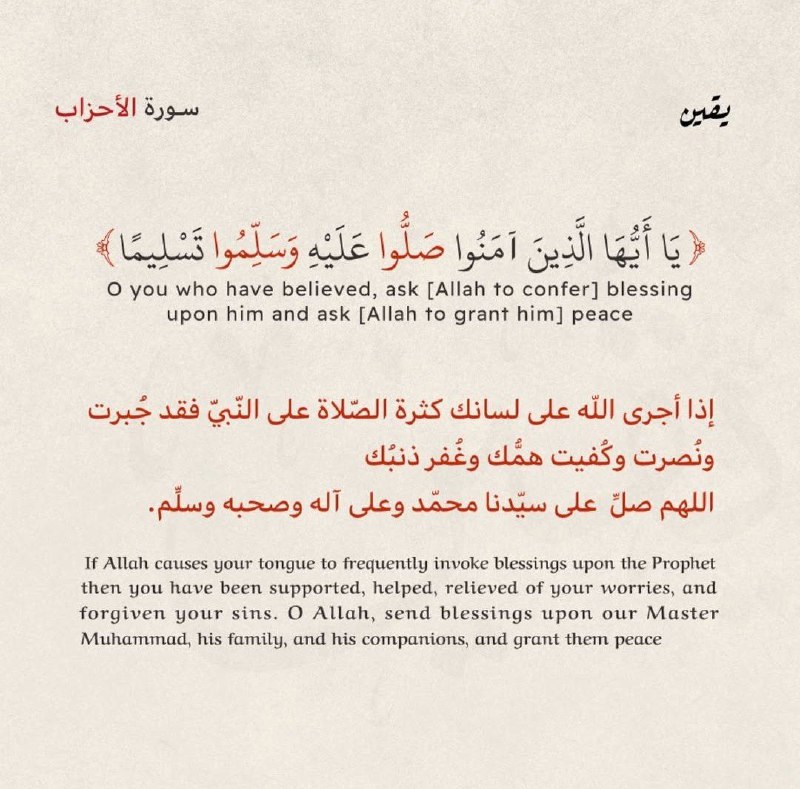 يقين
سورة الأحزاب
﴿يَا أَيُّهَا الَّذِينَ آمَنُوا صَلُّوا عَلَيْهِ وَسَلِّمُوا تَسْلِيمًا﴾
O you who have believed, ask [Allah to confer] blessing
upon him and ask [Allah to grant him] peace
إذا أجرى اللّه على لسانك كثرة الصّلاة على النّبيّ فقد جُبرت
ونُصرت وكُفيت همُّك وغُفر ذنبُك
اللهم صلِّ على سيّدنا محمّد وعلى آله وصحبه وسلِّم.
If Allah causes your tongue to frequently invoke blessings upon the Prophet
then you have been supported, helped, relieved of your worries, and
forgiven your sins. O Allah, send blessings upon our Master
Muhammad, his family, and his companions, and grant them peace